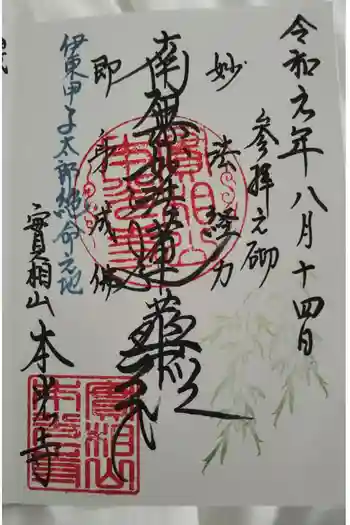 令和元年八月十四日
参拝之砌
妙法経力
南無妙法蓮華経
即身成佛
伊東甲子太郎絶命之地
實相山 本光寺